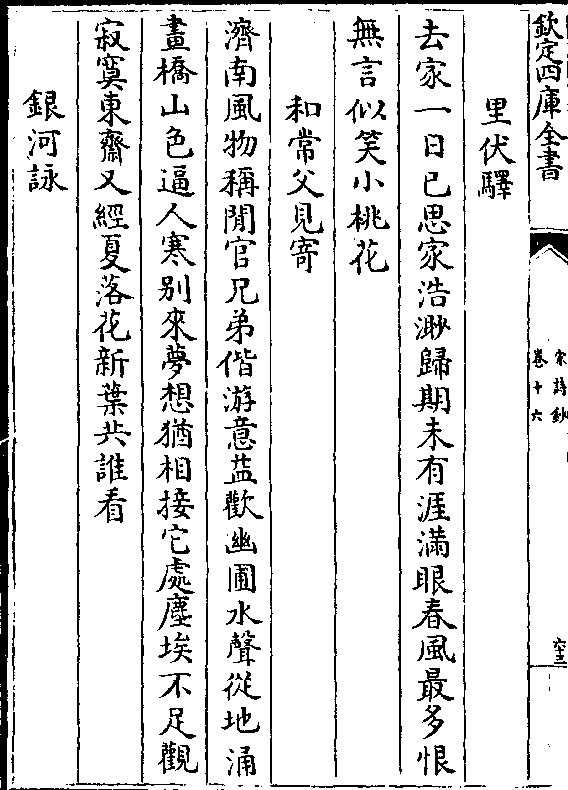 欽定四庫全書
宋詩鈔
卷十六
六三
里伏驛
去家一日已思家浩渺歸期未有涯滿眼春風最多恨
無言似笑小桃花
和常父見寄
濟南風物稱閒官兄弟偕游意益歡幽圃水聲從地涌
畫橋山色逼人寒别來夢想猶相接它處塵埃不足觀
寂寞東齋又經夏落花新葉共誰看
銀河詠